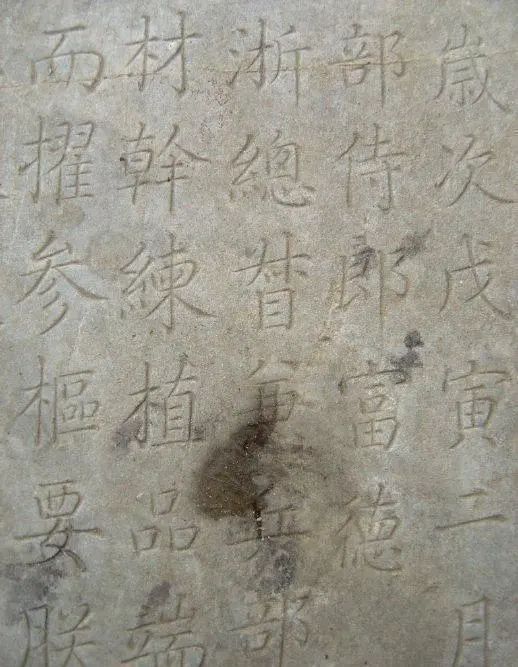 嵗次戊寅二月
部侍郎富德
浙總督兼兵部
材幹練植品端
而擢参樞要朕